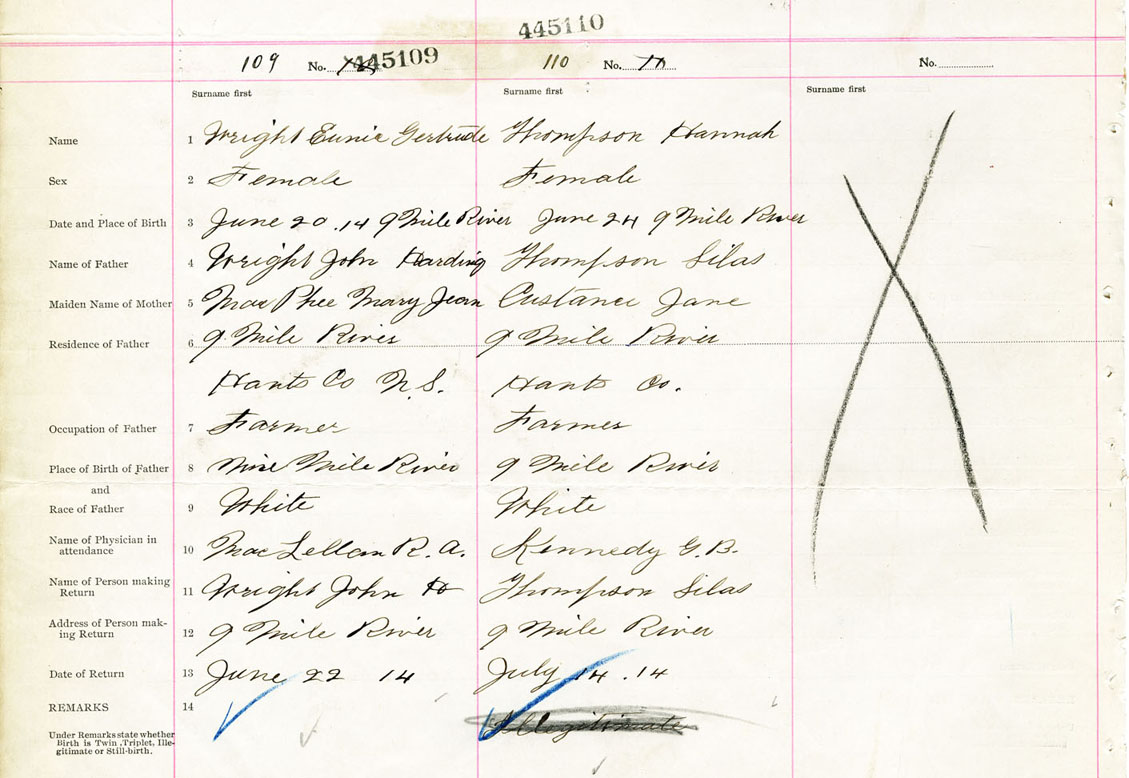 445110
109 No. 445109 110 No. No.
Surname first Surname first Surname first
Name 1 Wright Eunie Gertrude Thompson Hannah
Sex 2 Female Female
Date and Place of Birth 3 June 20.14 9 Mile River June 24 9 Mile River
Name of Father 4 Wright John Harding Thompson Silas
Maiden Name of Mother 5 MacPhee Mary Jean Custance Jane
Residence of Father 6 9 Mile River 9 Mile River
Hants Co N.S. Hants Co.
Occupation of Father 7 Farmer Farmer
Place of Birth of Father 8 Nine Mile River 9 Mile River
and
Race of Father 9 White White
Name of Physician in attendance 10 MacLellan R.A. Kennedy G.B.
Name of Person making Return 11 Wright John H Thompson Silas
Address of Person mak-ing Return 12 9 Mile River 9 Mile River
Date of Return 13 June 22 14 July 14.14
REMARKS 14
Illegitimate
Under Remarks state whether
Birth is Twin, Triplet, Ille-
gitimate or Still-birth.